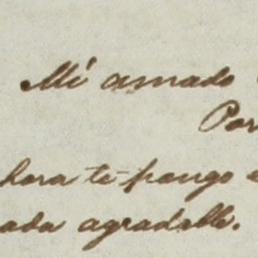 Mi amado
Por
hora te pongo
ada agradable.